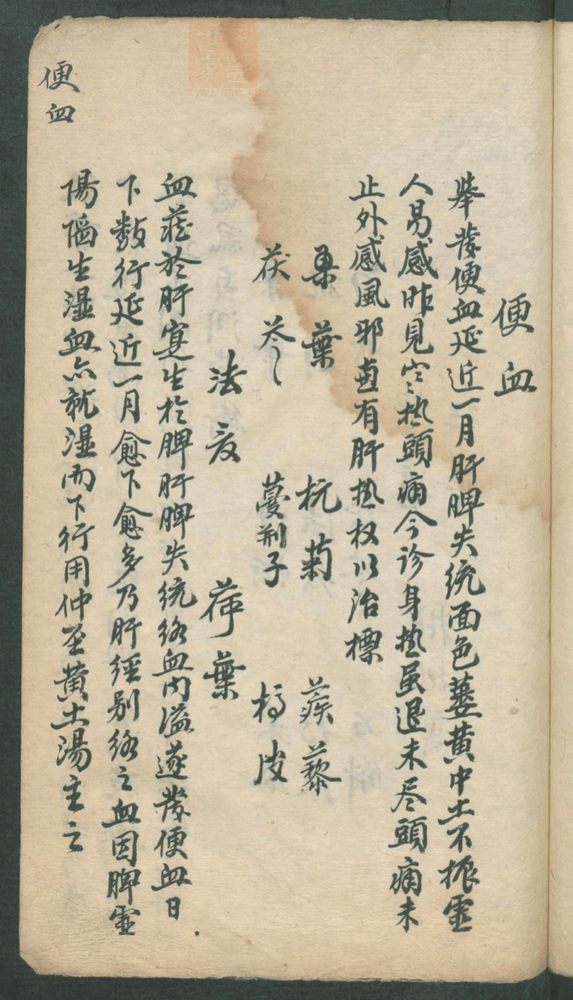 便血
舉發便血延近一月肝脾失統面色萎黃中土不振虛
人易感昨見寒熱頭痛今診身熱虽退未尽頭痛未
止外感風邪直有肝熱权以治標
桑葉 杭菊 蒺藜
茯苓 蔓荆子 橘皮
法夏 荷葉
血藏於肝寔生於脾肝脾失統絡血內溢遂發便血日
下数行延近一月愈下愈多乃肝經别絡之血因脾虛
陽陷生湿血亦就湿而下行用仲圣黄土湯主之
便血